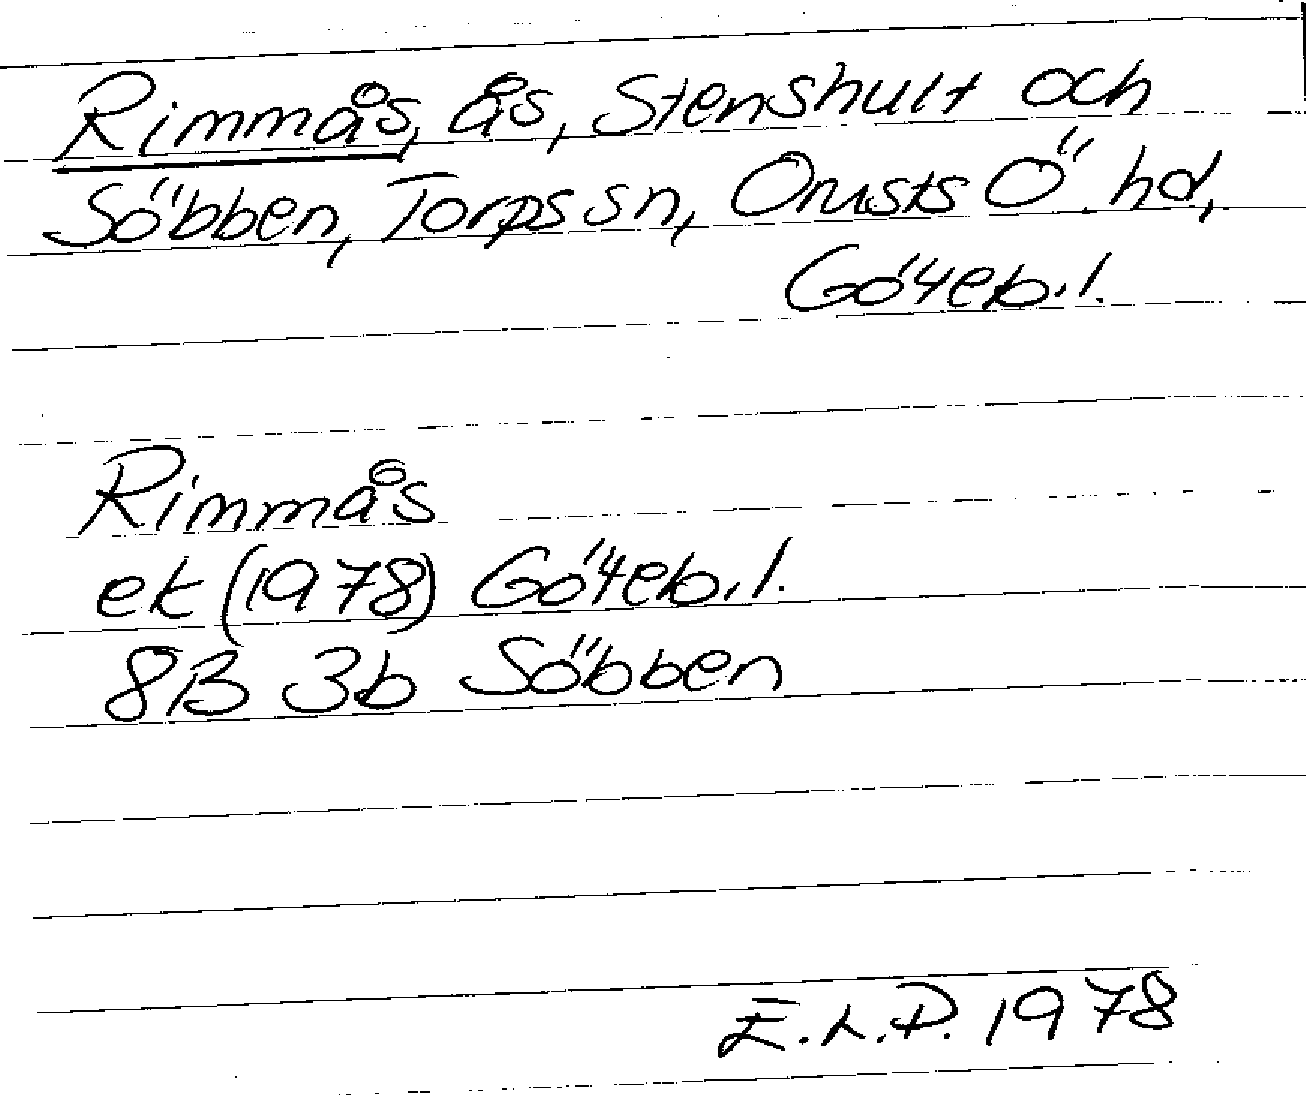 Rimmås, ås, Stenshult och
Söbben, Torps sn, Orusts Ö hd,
Göteb.l.
Rimmås
ek (1978) Göteb.l.
8B 3b Söbben
E.L.P. 1978